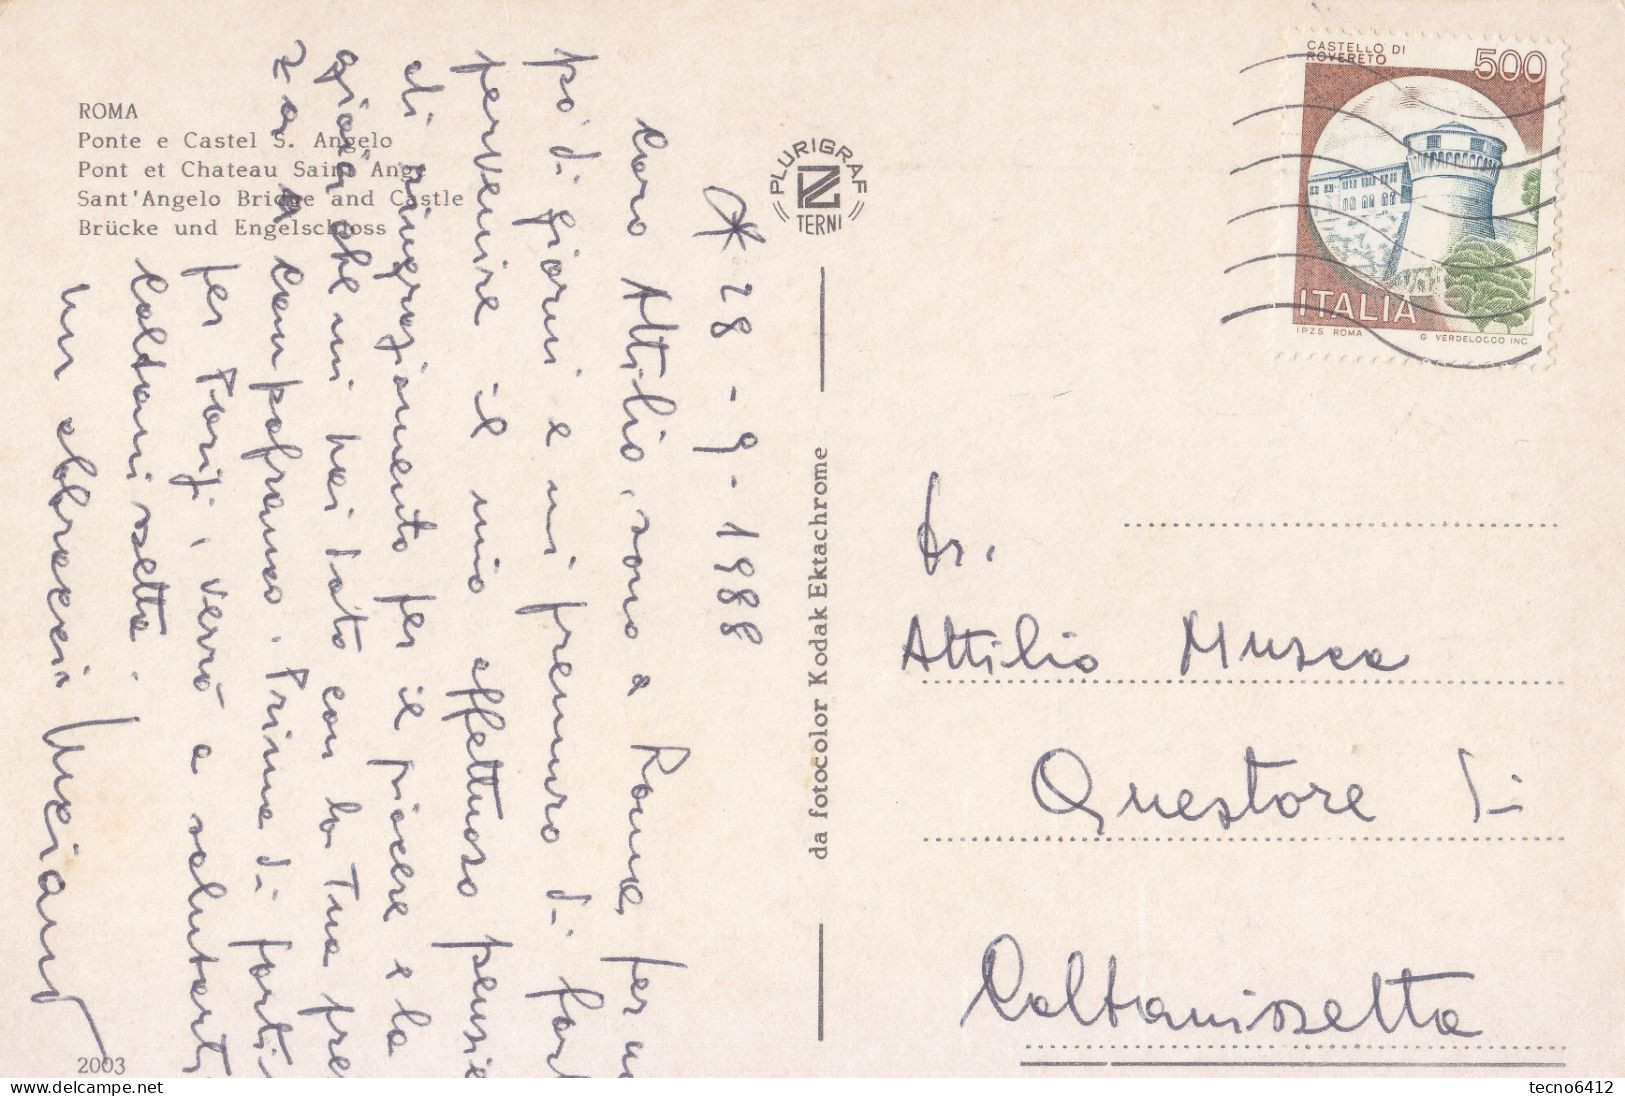 ROMA
Ponte e Castel S. Angelo
Pont et Chateau Saint Ange
Sant'Angelo Bridge and Castle
Brücke und Engelschloss
28-9-1988
Caro Attilio, sono a Roma, per un
pò di giorni e mi premuro di farti
pervenire il mio affettuoso pensiero
di ringraziamento per il piacere e la
gioia che mi hai dato con la Tua
con Prima di
per Parigi, verrò a salutarti
Caltanissetta.
Un abbraccio
2003
PLURIGRAF
TERNI
da fotocolor Kodak Ektachrome
CASTELLO DI
ROVERETO
500
ITALIA
I.P.Z.S. ROMA
G. VERDELOCCO INC.
Dr.
Attilio Musca
Questore di
Caltanissetta
delcampe.net
tecno6412